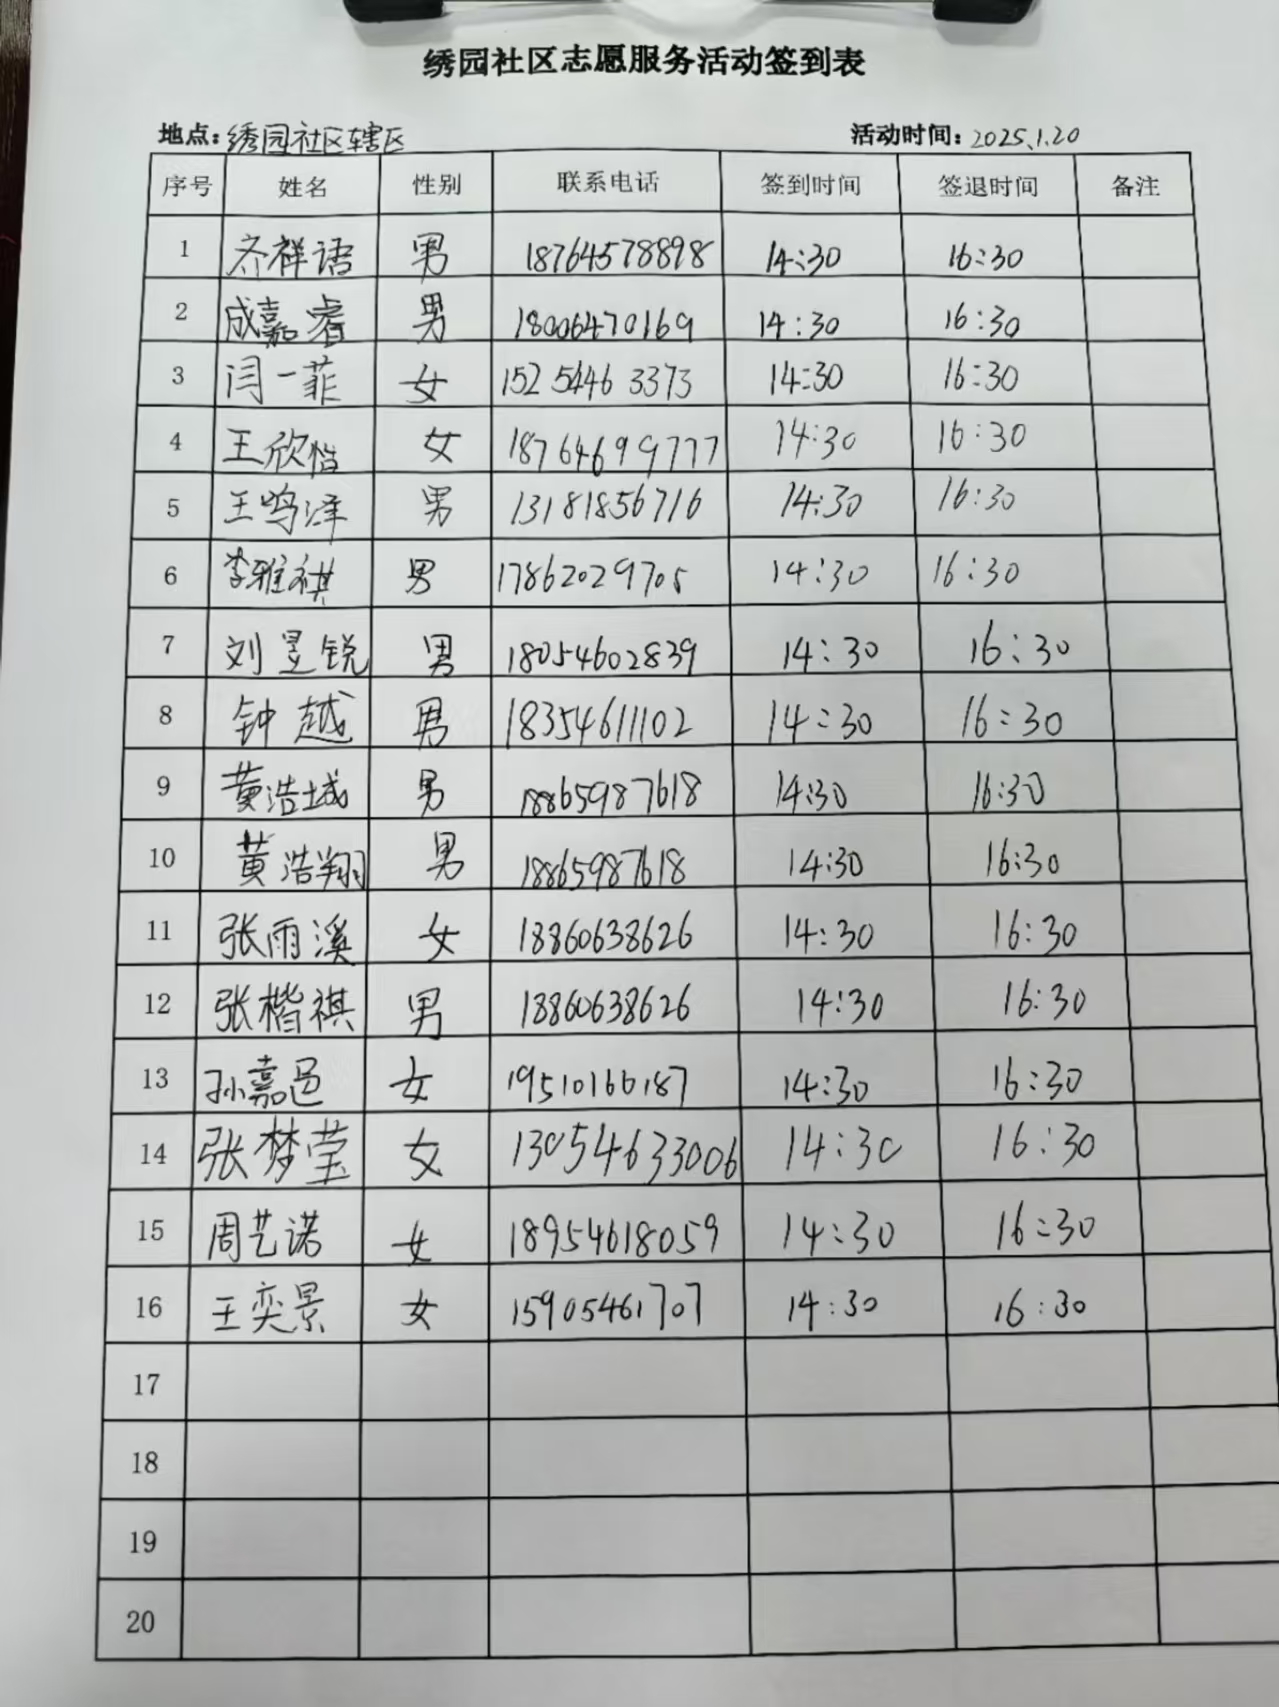 绣园社区志愿服务活动签到表
地点：绣园社区辖区 活动时间：2025.1.20
序号 姓名 性别 联系电话 签到时间 签退时间 备注
1 齐祥语 男 18764578898 14:30 16:30
2 成嘉睿 男 18006470169 14:30 16:30
3 闫一菲 女 152 5446 3373 14:30 16:30
4 王欣怡 女 18764699777 14:30 16:30
5 王鸣泽 男 13181856716 14:30 16:30
6 李雅祺 男 17862029705 14:30 16:30
7 刘昱锐 男 18054602839 14:30 16:30
8 钟越 男 18354611102 14:30 16:30
9 黄浩城 男 18865987618 14:30 16:30
10 黄浩翔 男 18865987618 14:30 16:30
11 张雨溪 女 18860638626 14:30 16:30
12 张楷祺 男 18860638626 14:30 16:30
13 孙嘉邑 女 19510166187 14:30 16:30
14 张梦莹 女 13054633006 14:30 16:30
15 周艺诺 女 18954618059 14:30 16:30
16 王奕景 女 15905461707 14:30 16:30
17
18
19
20